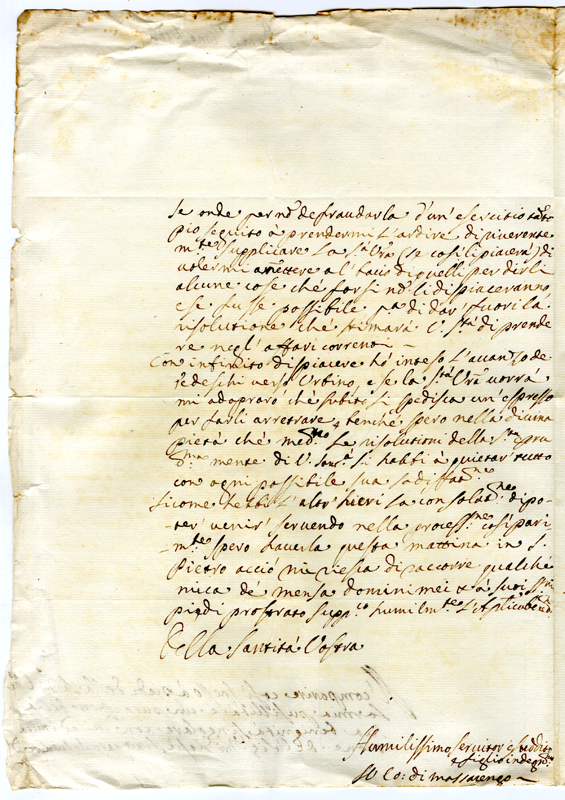 se onde per nõ defraudarla d'un esercitio tãto
pio seguito à prendermi l'ardire di riverente
m.te supplicare la S.tà Vr̃a (se così li piacerà) di
volermi amettere a l'bacio di quelli per dirli
alcune cose che forsi nõ li dispiaceranno
e se fusse possibile p.a di dar' fuori la
risolutione che stimarà V. S.tà di prende
re negl'affari correnti –
Con infinito dispiacere hò inteso l'avanzo de
Tedeschi verso Urbino, e se la S.tà Vr̃a vorrà
mi adoprarò che subito si spedisca un'espresso
per farli arretrare, benchè spero nella divina
pietà che med.te le risolutioni della S.ma e pru
d.ma mente di V. Sant.à si habbi à quietar' tutto
con ogni possibile sua sadisfat.ne
Sicome hebbi l'altr'hieri la consolat.ne di po
ter' venir' servendo nella process.ne così pari
m.te spero haverla questa mattina in S.
Pietro acciò mi riesca di raccorre qualche
mica de mensa domini mei & à suoi S.mi
piedi prostrato supp.co humilm.te l'Ap.lica Bened.
Della Santità Vostra
Humilissimo servitor e suddito
e figlio indegn.mo
Co: di Massarengo